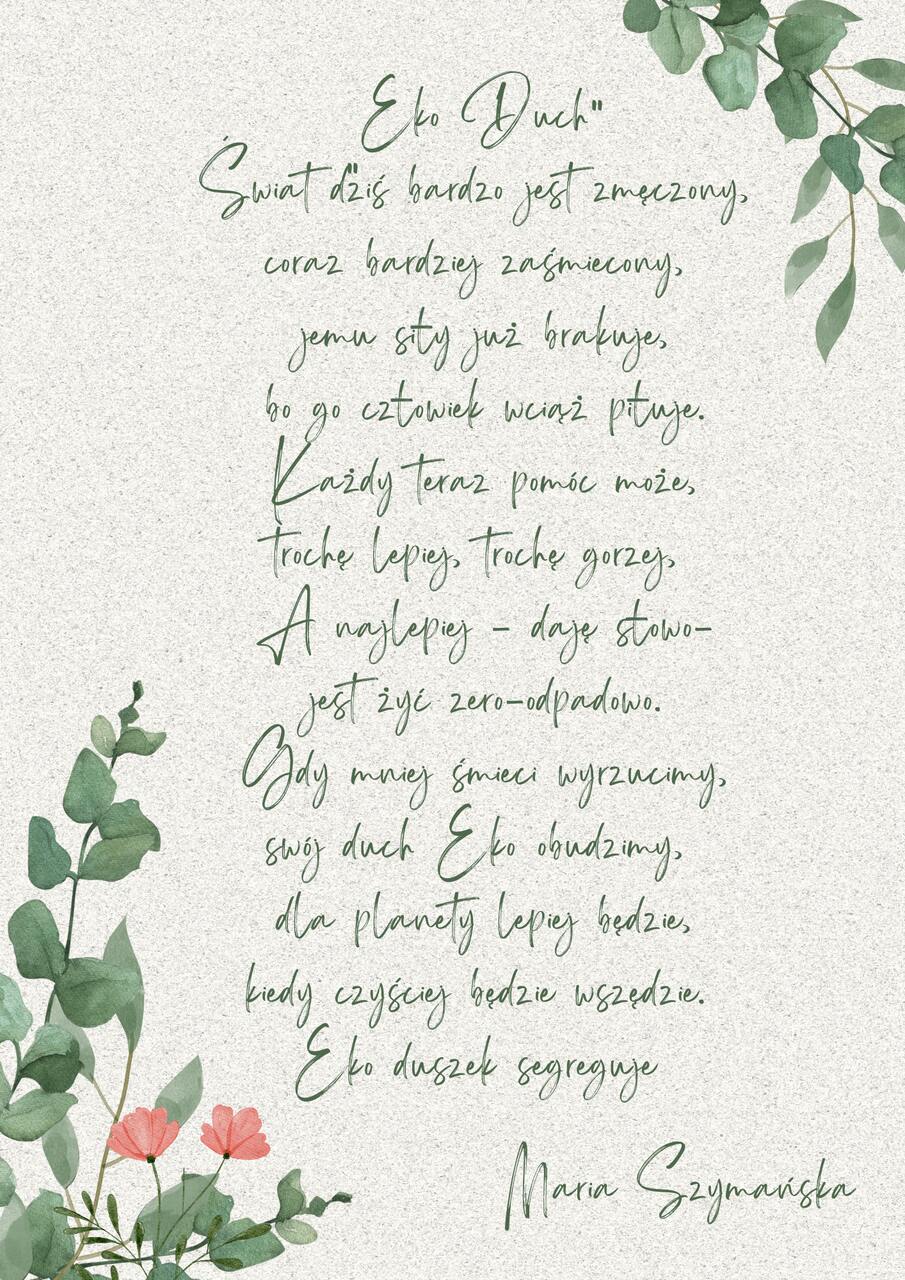 Eko Duch"
Świat dziś bardzo jest zmęczony,
coraz bardziej zaśmiecony,
jemu siły już brakuje,
bo go człowiek wciąż piłuje.
Każdy teraz pomóc może,
trochę lepiej, trochę gorzej,
A najlepiej - daję słowo-
jest żyć zero-odpadowo.
Gdy mniej śmieci wyrzucimy,
swój duch Eko obudzimy,
dla planety lepiej będzie,
kiedy czyściej będzie wszędzie.
Eko duszek segreguje
Maria Szymańska